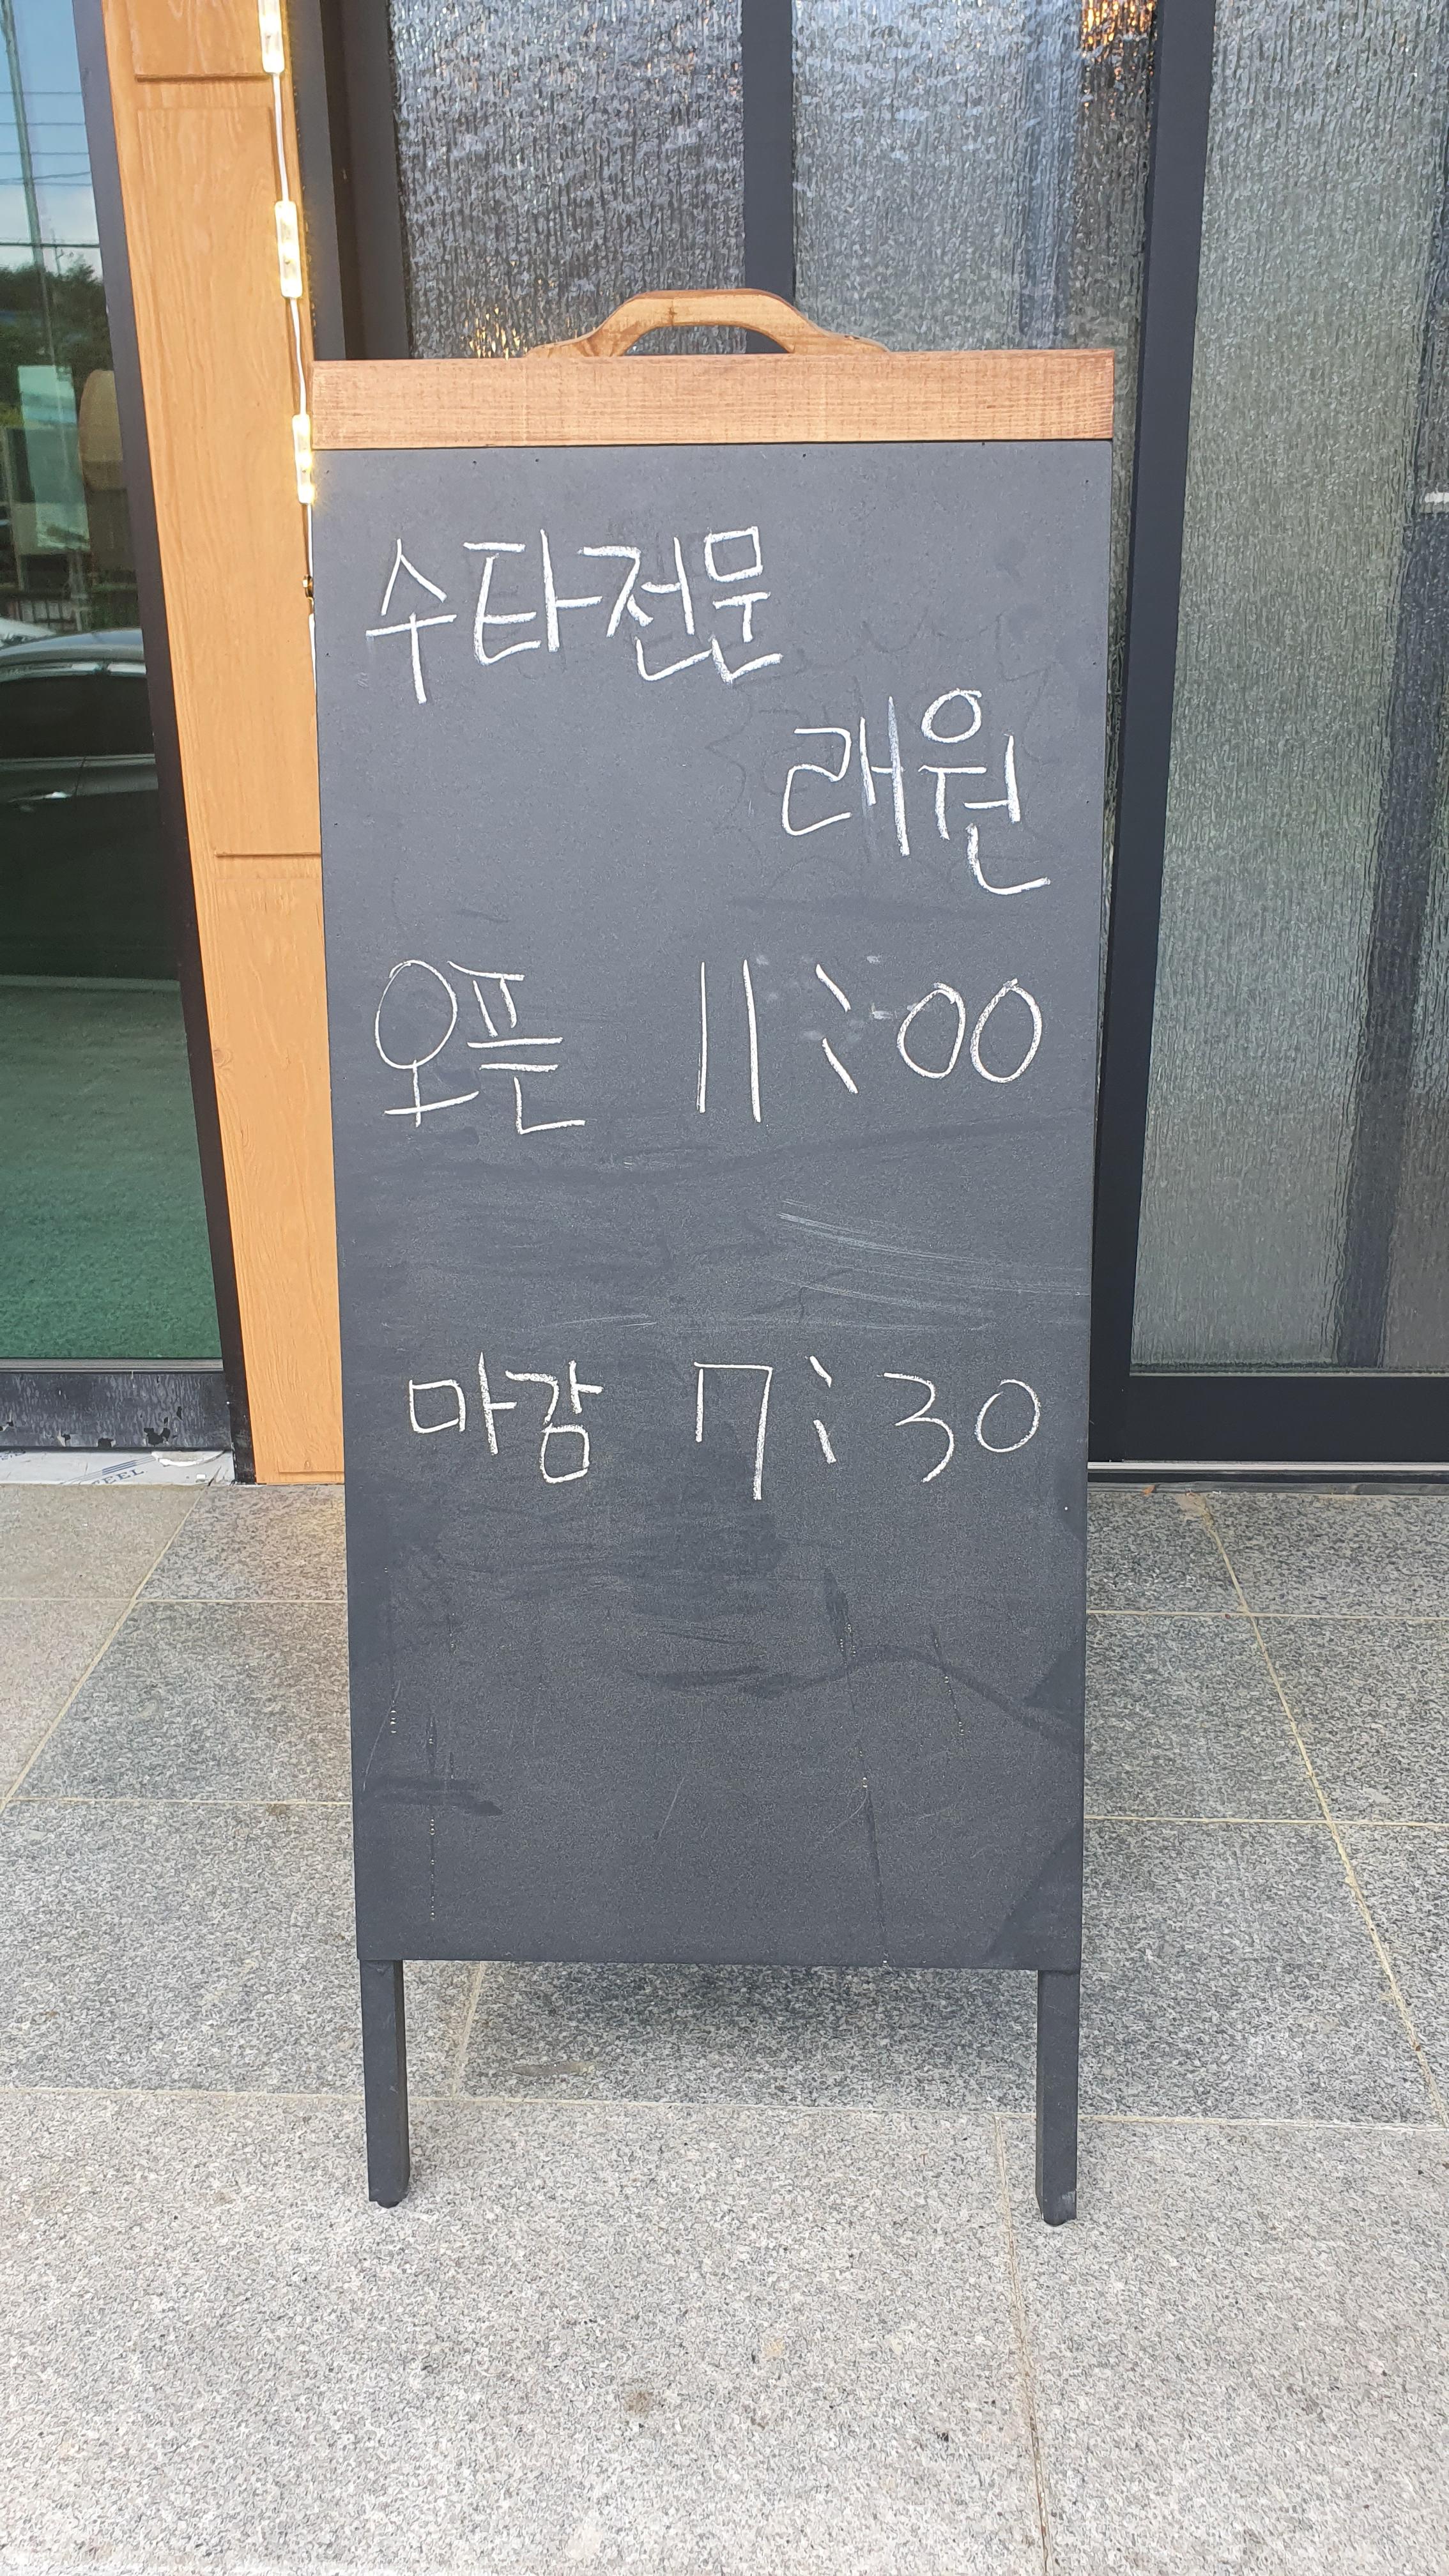 수타전문
래원
오픈 11:00
마감 7:30